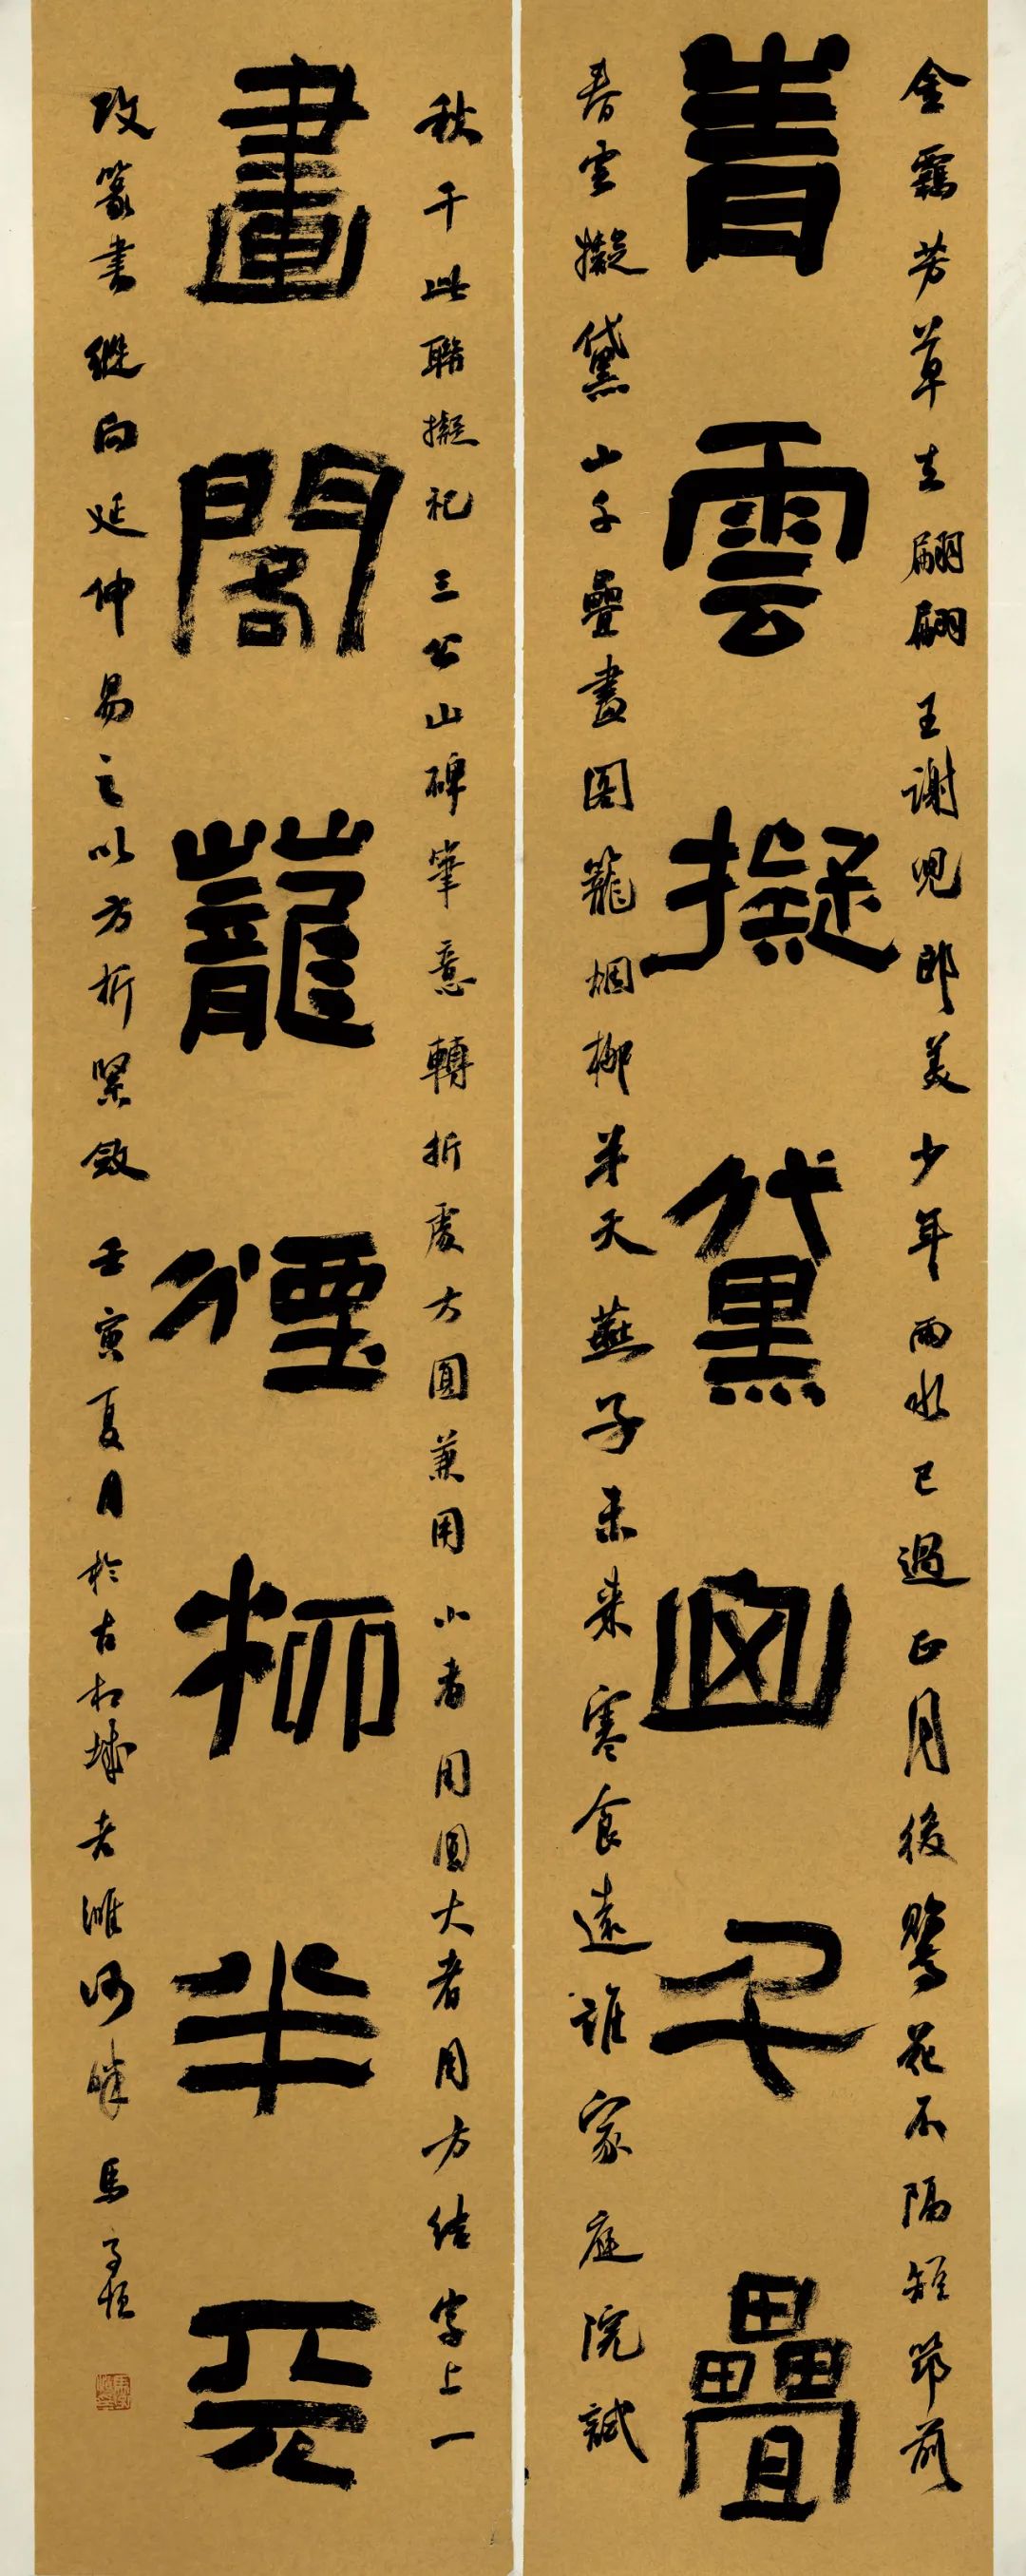 金羈芳草去翩翩王謝兒郎美少年雨水已過正月後鶯花不隔短筇前
春雲擬黛山千疊
春雲擬黛山千疊畫閣籠烟柳半天燕子未來寒食遠誰家庭院試
秋千此聯擬祀三公山碑筆意轉折處方圓兼用小者用圓大者用方結字上一
畫閣籠煙柳半天
改篆書縱向延伸易之以方折緊斂壬寅夏月於古相城老濉河畔馬